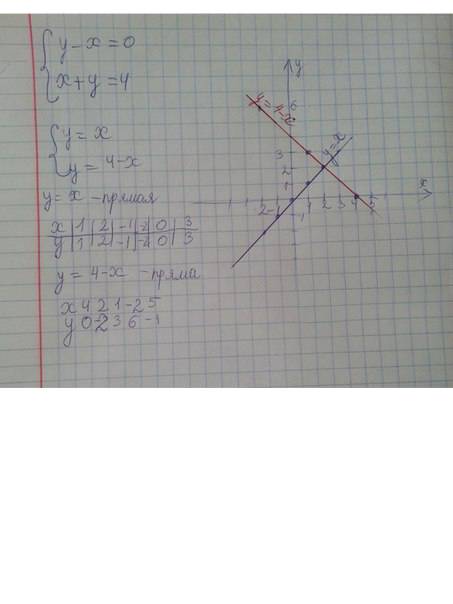 y-x=0
x+y=4
y=x
y=4-x
y=x -прямая
x 1 2 -1 -2 0 3
y 1 2 -1 -2 0 3
y=4-x -пряма
x 4 2 1 -2 5
y 0 2 3 6 -1
y
6
y=4-x
y=x
3
2
1
x
2 -1 1 2 3 4 5